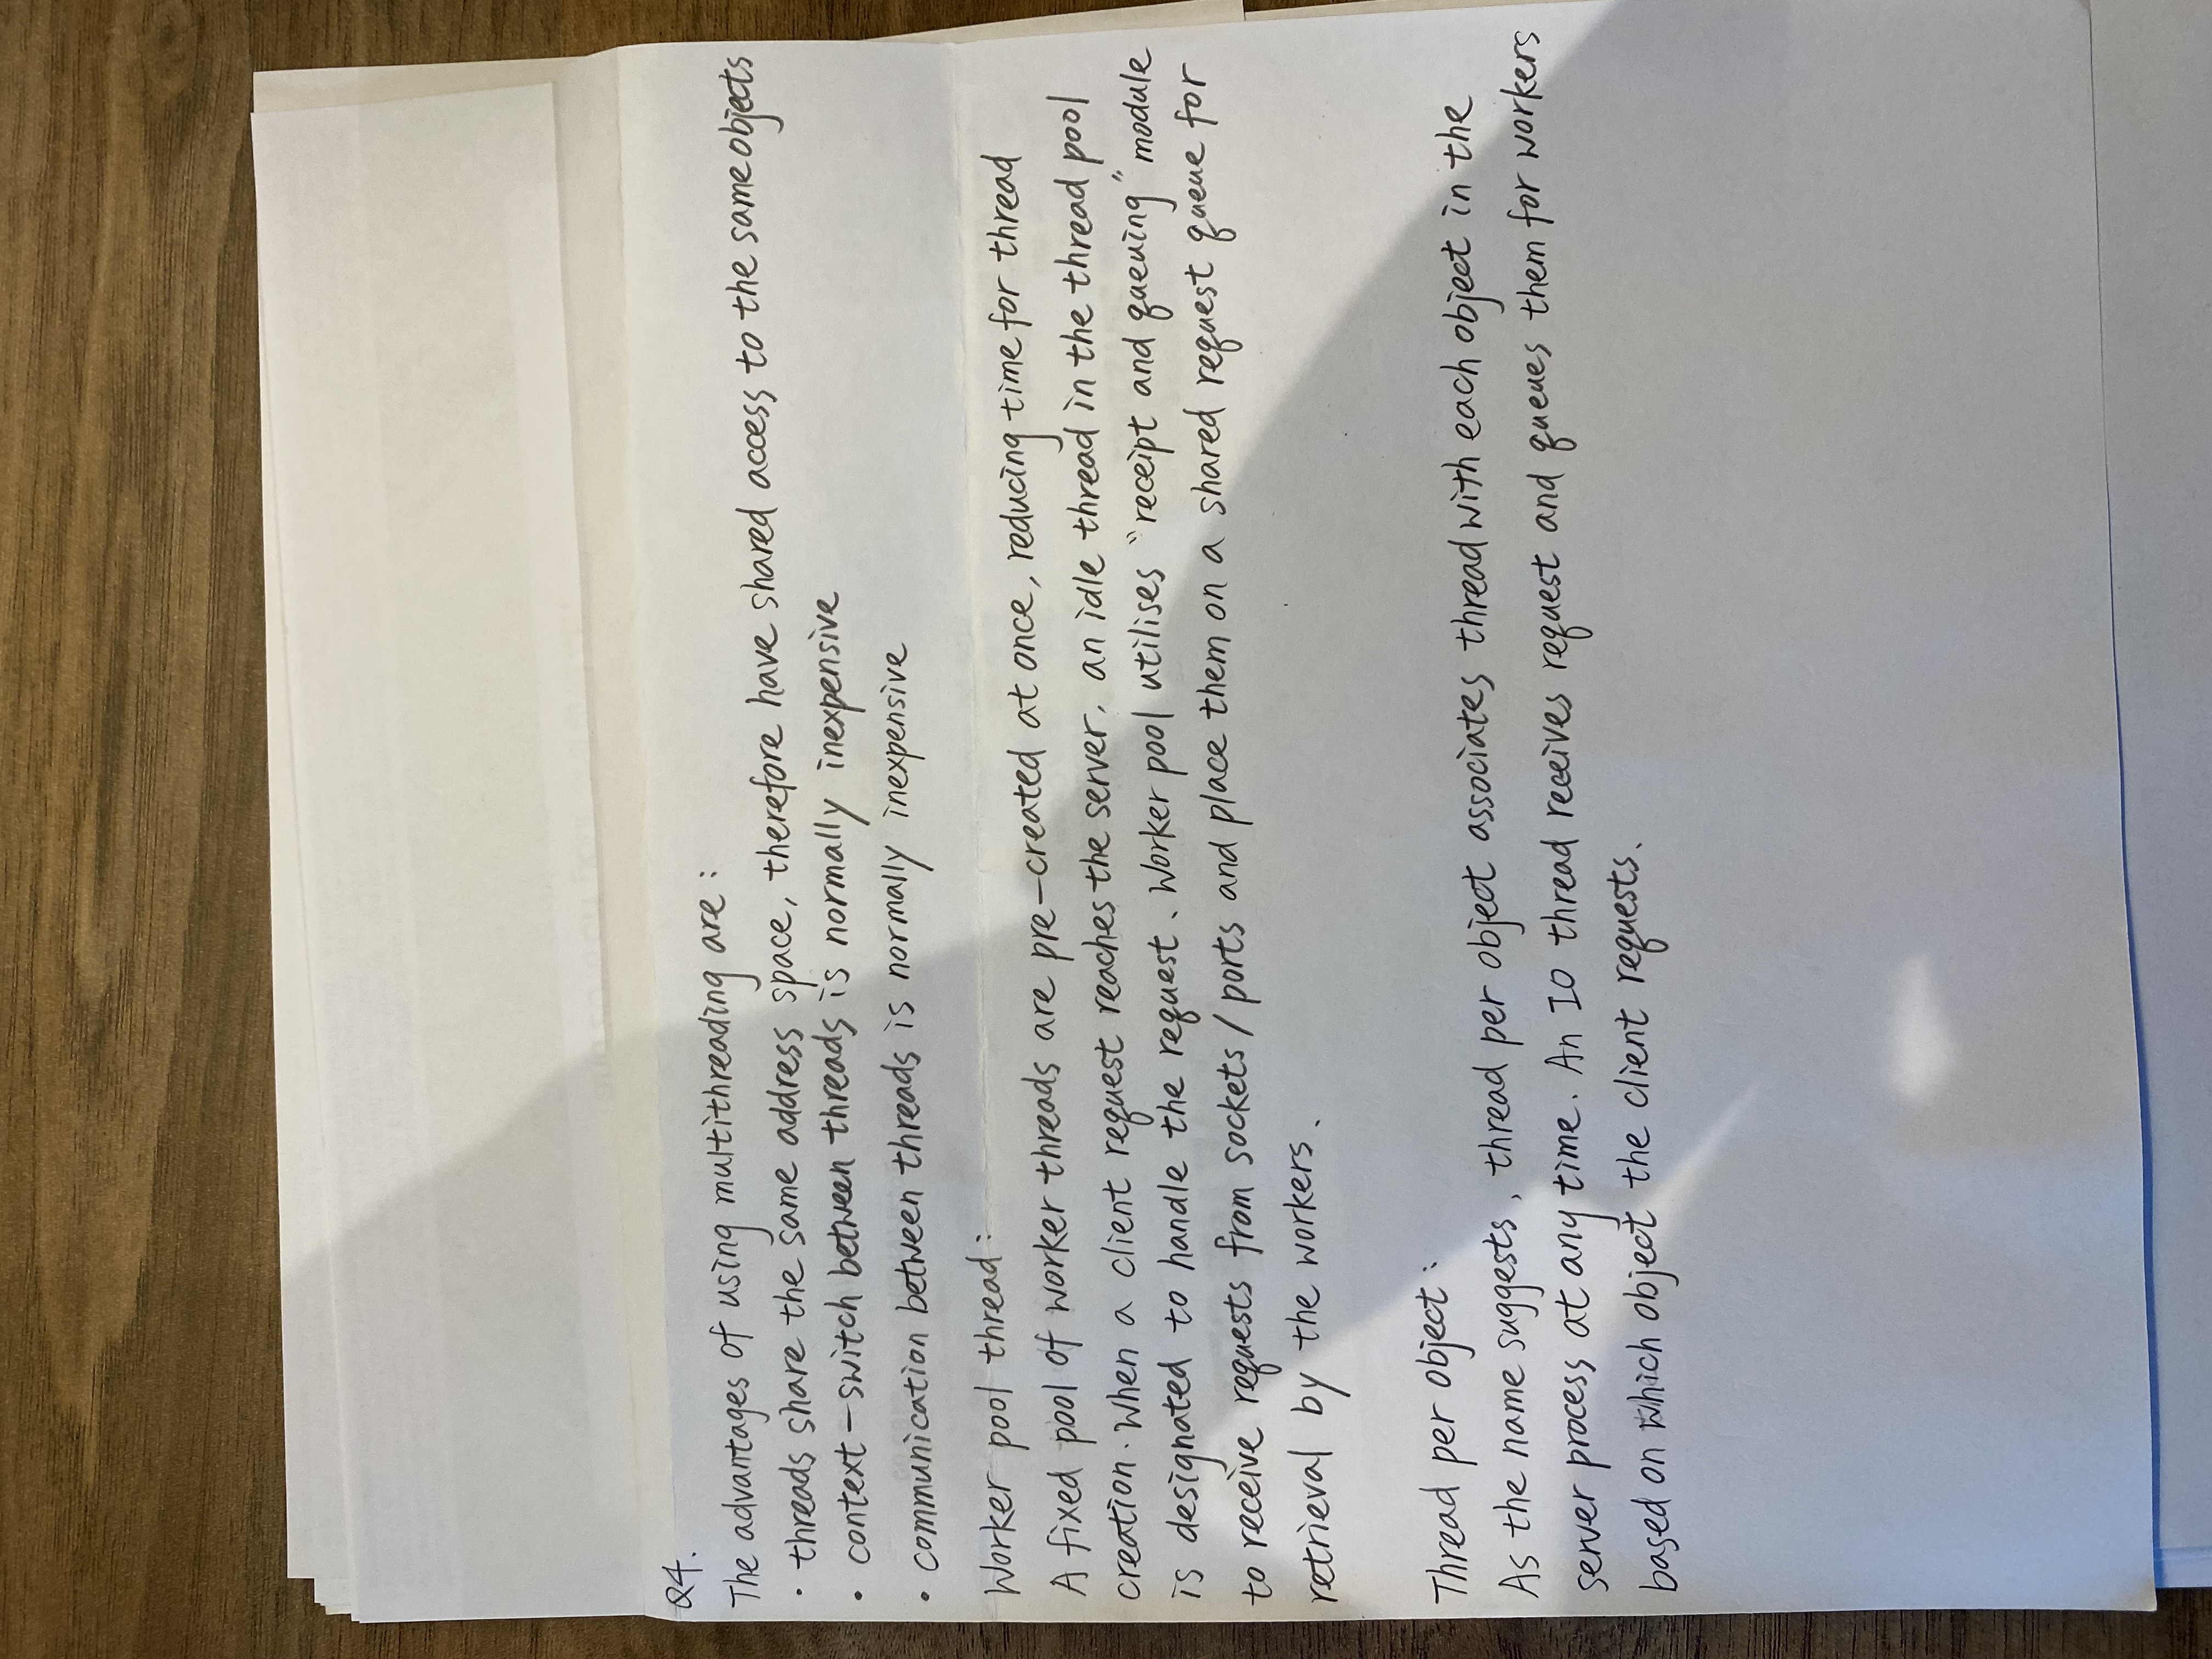 Q4.
The advantages of using multithreading are :
• threads share the same address space, therefore have shared access to the same objects
• context-switch between threads is normally inexpensive
• communication between threads is normally inexpensive
Worker pool thread :
A fixed pool of worker threads are pre-created at once, reducing time for thread
creation. When a client request reaches the server, an idle thread in the thread pool
is designated to handle the request. Worker pool utilises "receipt and queuing" module
to receive requests from sockets / ports and place them on a shared request queue for
retrieval by the workers.
Thread per object :
As the name suggests, thread per object associates thread with each object in the
server process at any time. An IO thread receives request and queues them for workers
based on which object the client requests.